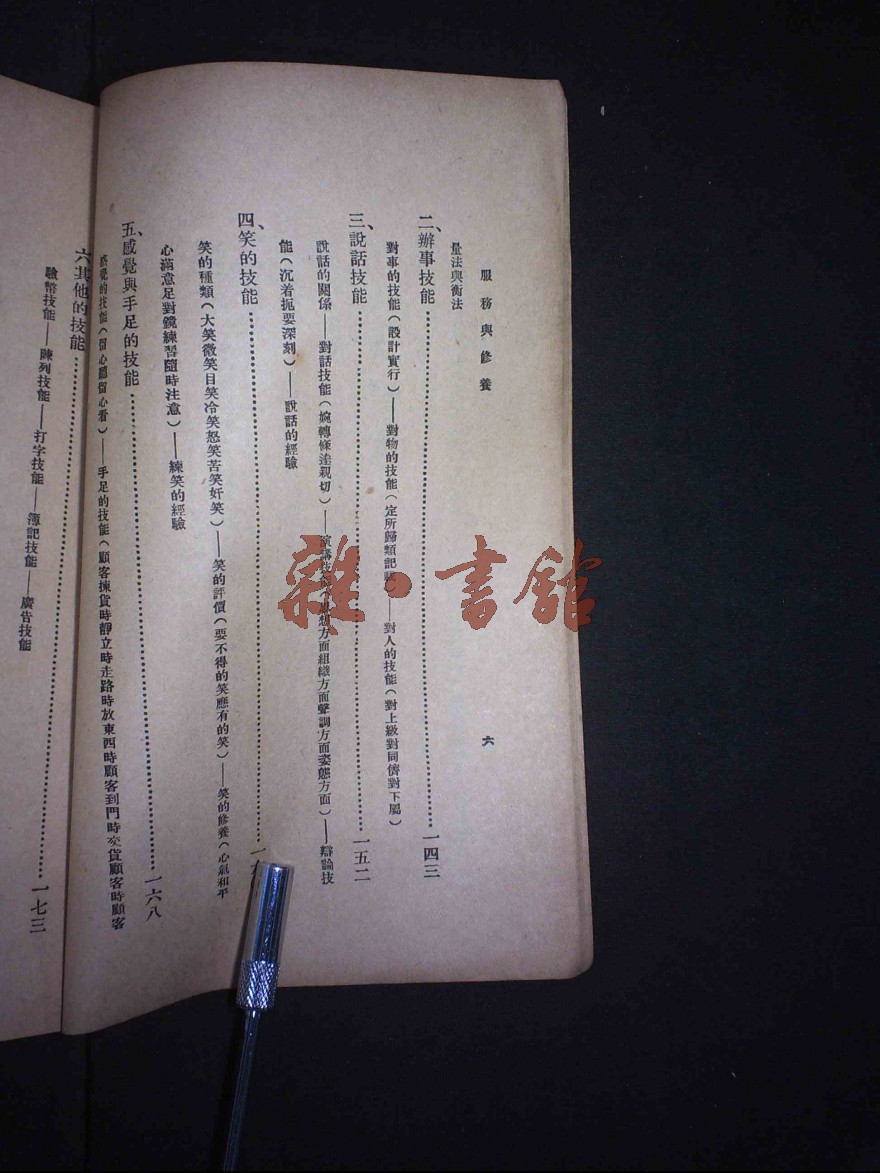 服務與修養
六
量法與衡法
二、辦事技能……一四三
對事的技能（設計實行）——對物的技能（定所歸類記）——對人的技能（對上級對同儕對下屬）
三、說話技能……一五二
說話的關係——對話技能（婉轉條達親切）——演講技能（思想方面組織方面聲調方面姿態方面）——辯論技
能（沉着扼要深刻）——說話的經驗
四、笑的技能……一
笑的種類（大笑微笑目笑冷笑怒笑苦笑奸笑）——笑的評價（要不得的笑應有的笑）——笑的修養（心氣和平
心滿意足對鏡練習隨時注意）——練笑的經驗
五、感覺與手足的技能……一六八
感覺的技能（留心聽留心看）——手足的技能（顧客揀貨時靜立時走路時放東西時顧客到門時交貨顧客時顧客
六、其他的技能……一七三
驗幣技能——陳列技能——打字技能——簿記技能——廣告技能
雜·書館